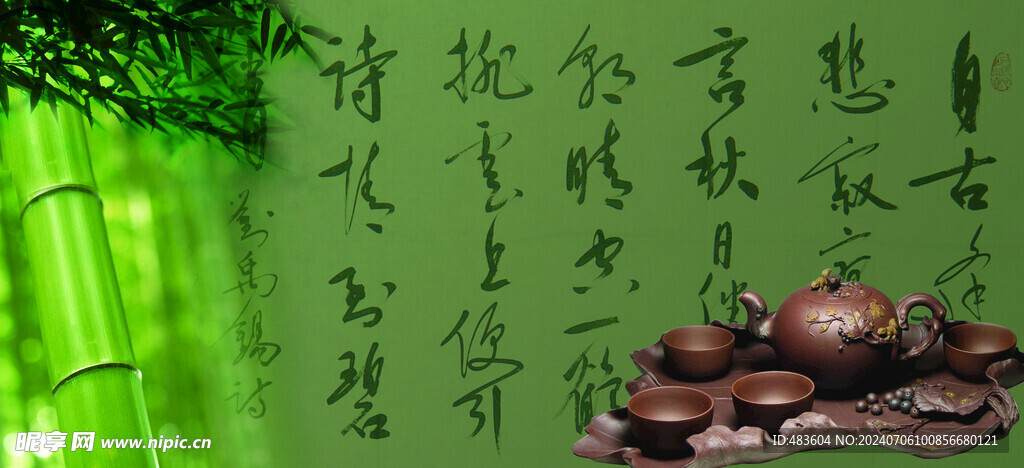 自古逢
悲寂寥
言秋日勝
朝晴空一鶴
排雲上便引
詩情到碧
劉禹錫詩
昵享网 www.nipic.cn
ID:483604 NO:20240706100856680121